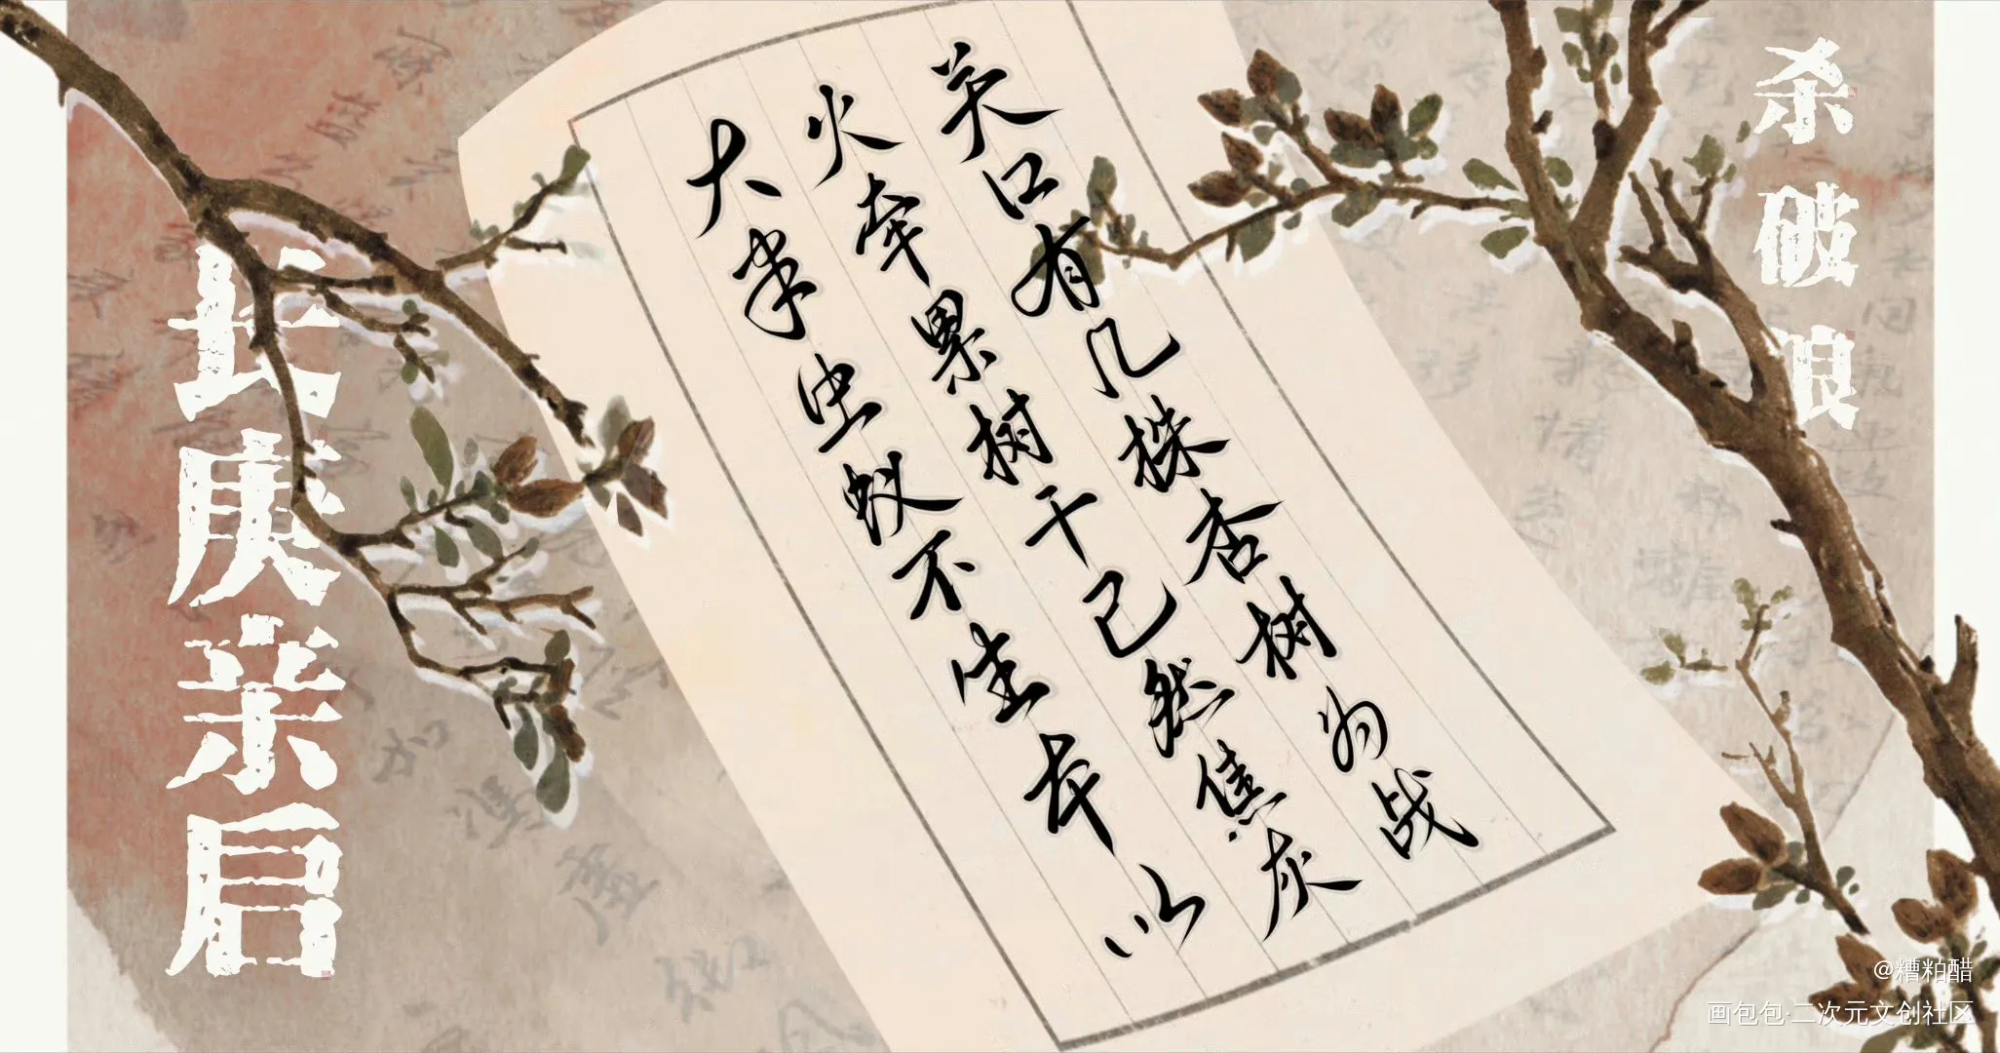 杀破狼
关口有几株杏树为战
火牵累树干已然焦灰
大半虫蚁不生本以
长庚亲启
@糟粕醋
画包包·二次元文创社区